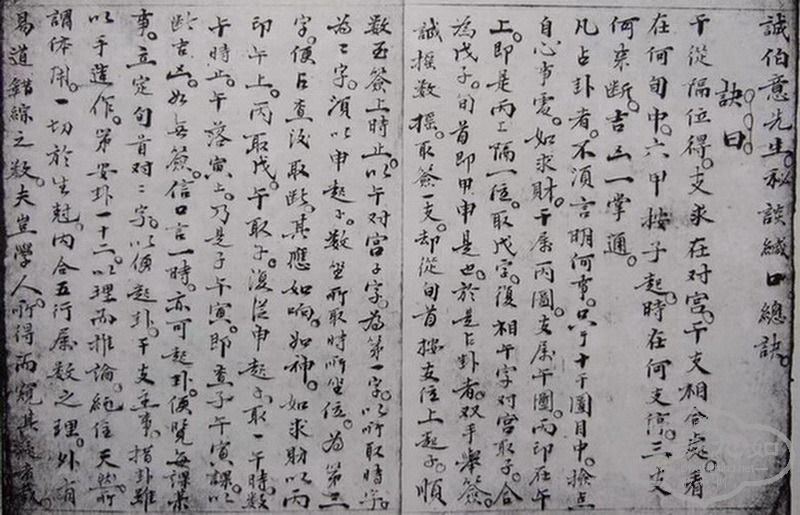 誠伯意先生秘談緘口總訣。
訣曰。
干從隔位得。支求在对宮。干支相合處。看
在何旬中。六甲按子起。時在何支停。三支
何来断。吉凶一掌通。
凡占卦者。不須言明何事。只于十干圖目中。撿点
自心事處。如求財。干属丙圖。支属午圖。丙印在午
上。即是丙上隔一位。取戊字。復相午字对宮取子。合
為戊子。旬首即甲申是也。於是占卦者。双手舉簽。
誠摇数摇。取簽一支。却從旬首按支位上起子。順
数至簽上時止。以午对宮子字。為第一字。以所取時字。
為二字。須以申起子。数坐所取時所坐位。為第三
字。便占查後取断。其應如响。如神。如求財以丙
印午上。丙取戊。午取子。復從申起子。取一午時。数
午時止。午落寅上。乃是子午寅。即查子午寅課。以
断吉凶。如無簽。信口言一時。亦可起卦。便覽每課某
事。立定旬首对二字。以便起卦。干支主事。卦雖
以手造作。第安卦一十二。以理而推論。純任天然。所
謂体用。一切於生尅。内合五行属数之理。外有
易道錯綜之数。夫豈學人所得而窺其哉。